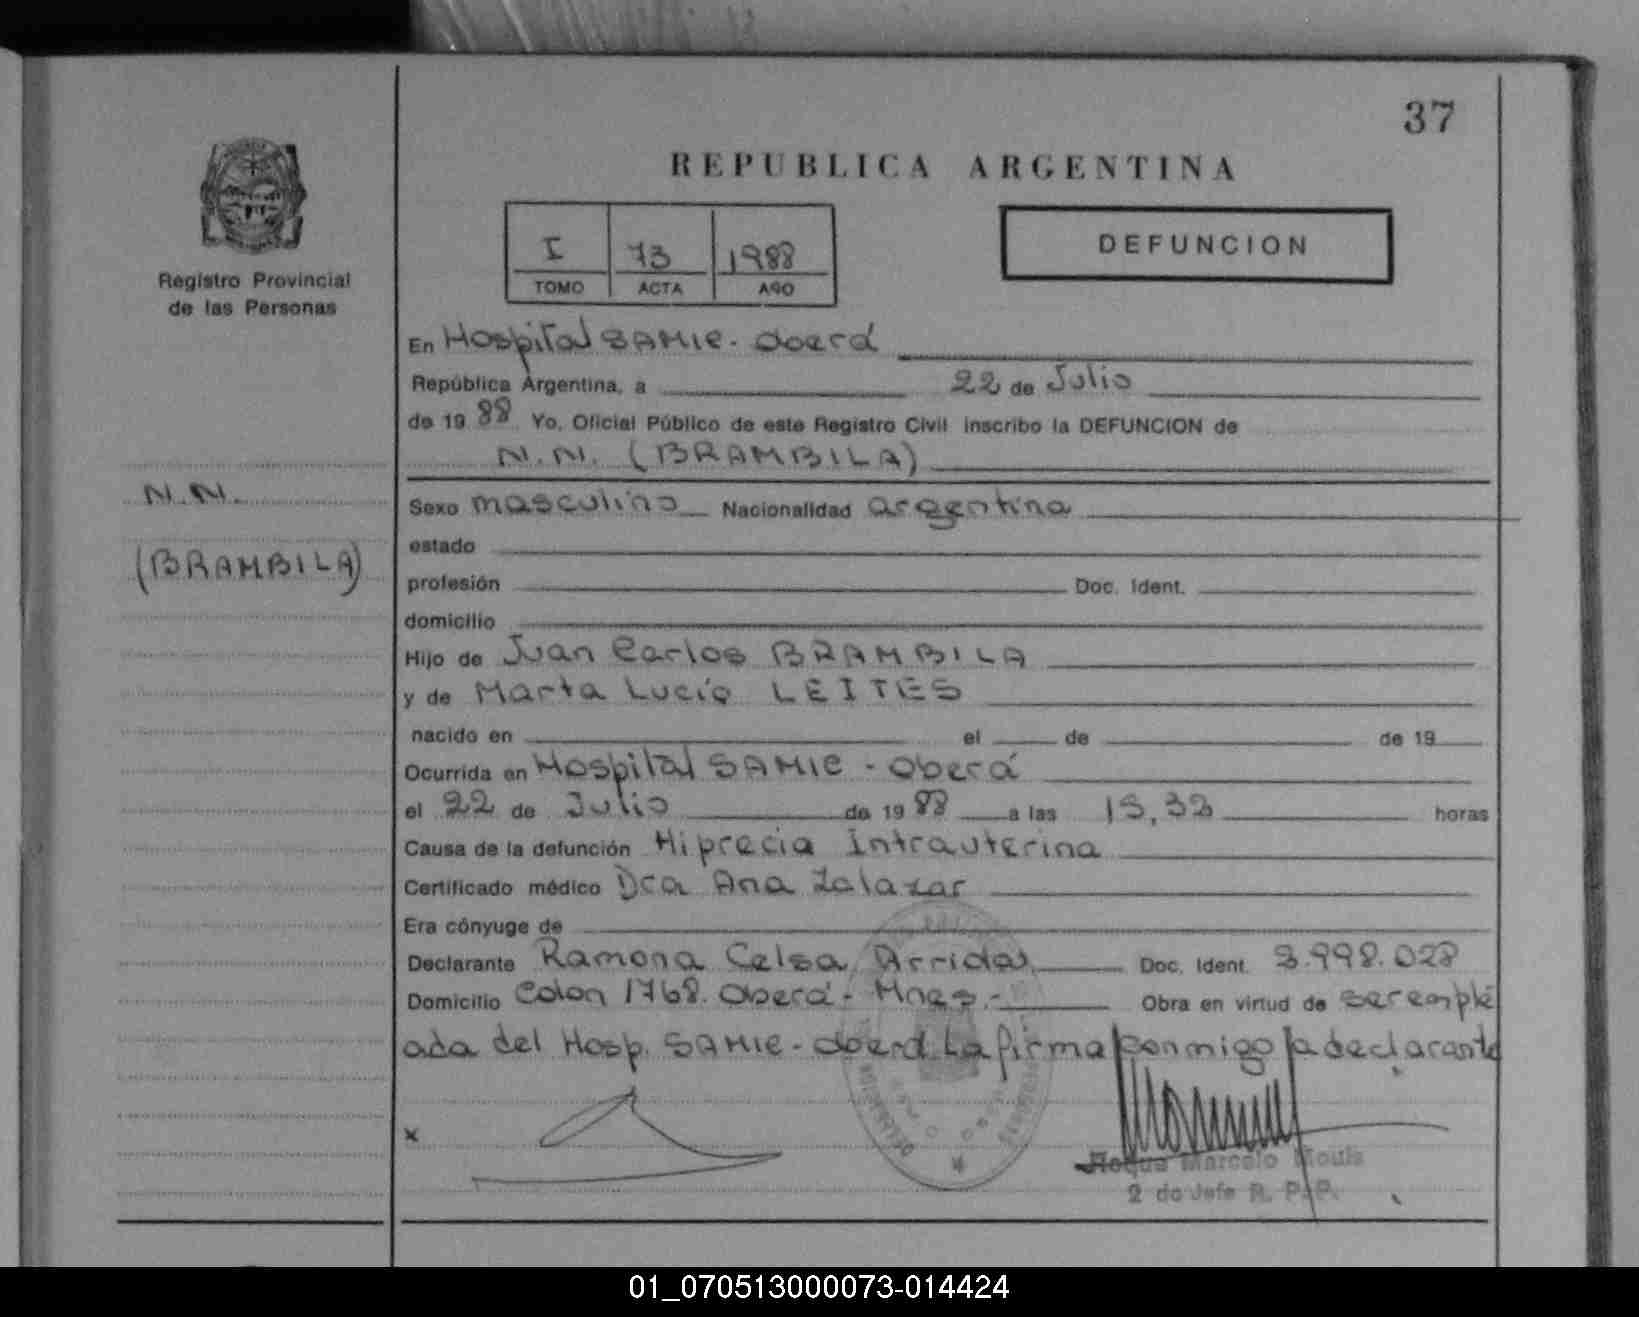 37
REPUBLICA ARGENTINA
Registro Provincial
de las Personas
I 73 1988
TOMO ACTA AÑO
DEFUNCION
En Hospital SAMIC - Oberá
República Argentina, a 22 de Julio
de 19 88 Yo, Oficial Público de este Registro Civil inscribo la DEFUNCION de
N.N. (BRAMBILA)
N.N.
(BRAMBILA)
Sexo masculino Nacionalidad argentina
estado
profesión Doc. Ident.
domicilio
Hijo de Juan Carlos BRAMBILA
y de Marta Lucia LEITES
nacido en el de de 19
Ocurrida en Hospital SAMIC - Oberá
el 22 de Julio de 19 88 a las horas
Causa de la defunción Hiprecia Intrauterina
Certificado médico Dra Ana Zalazar
Era cónyuge de
Declarante Ramona Celsa Doc. Ident. 3.998.028
Domicilio Colon 1768. Oberá - Mnes.- Obra en virtud de ser emple
ada del Hosp. SAMIC - Oberá. La firma conmigo la declarante
x
Roque Marcelo Mouis
2 do Jefe R. P. P.
01_070513000073-014424